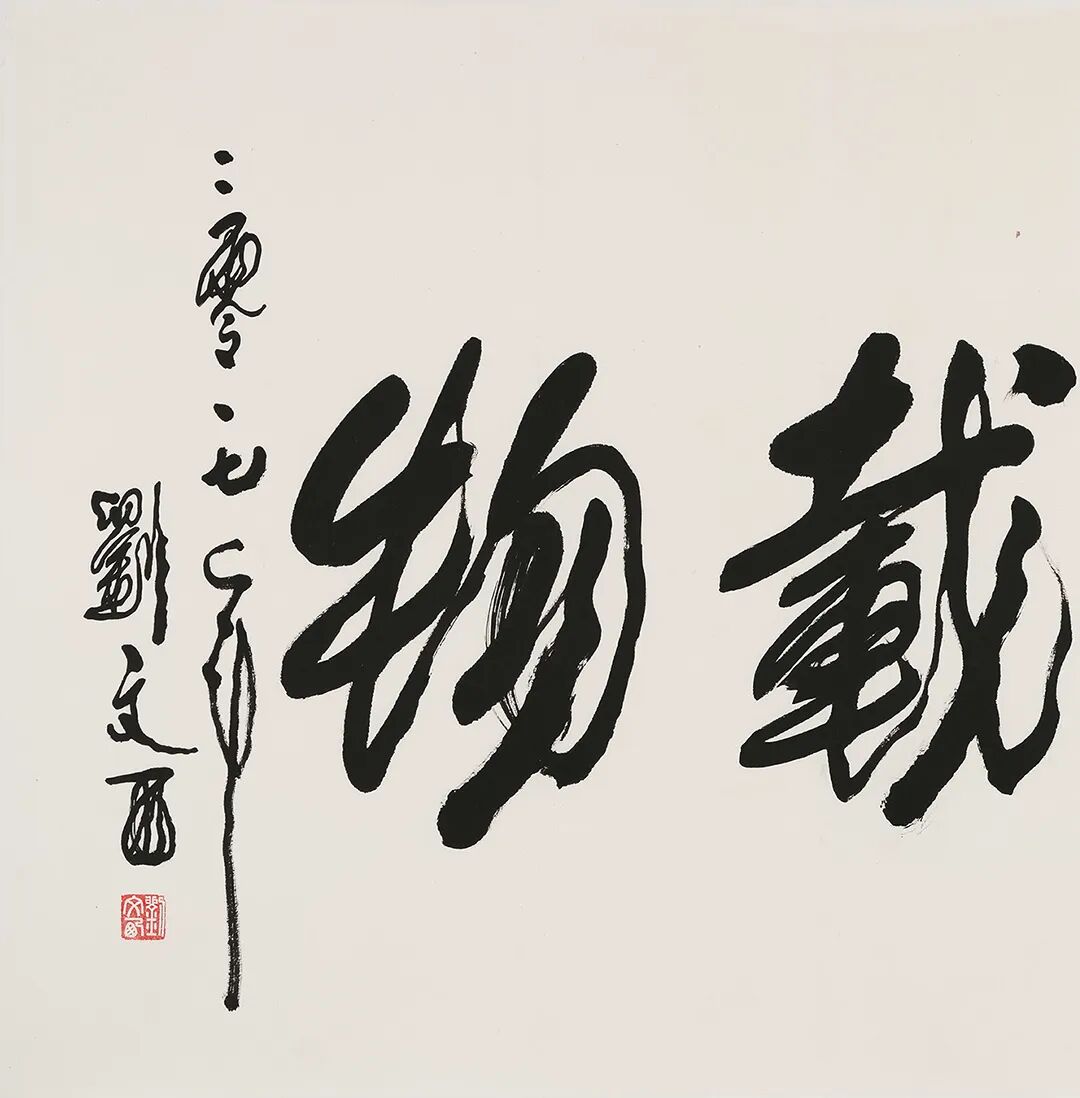 載物
二零一七年
劉文西
劉文西